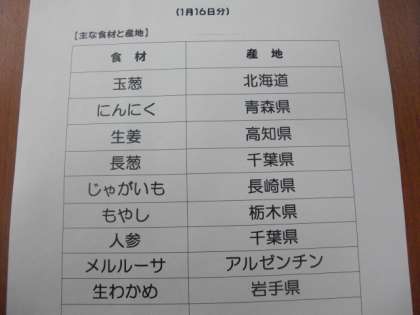 (1月16日分)
【主な食材と産地】
食材 産地
玉葱 北海道
にんにく 青森県
生姜 高知県
長葱 千葉県
じゃがいも 長崎県
もやし 栃木県
人参 千葉県
メルルーサ アルゼンチン
生わかめ 岩手県